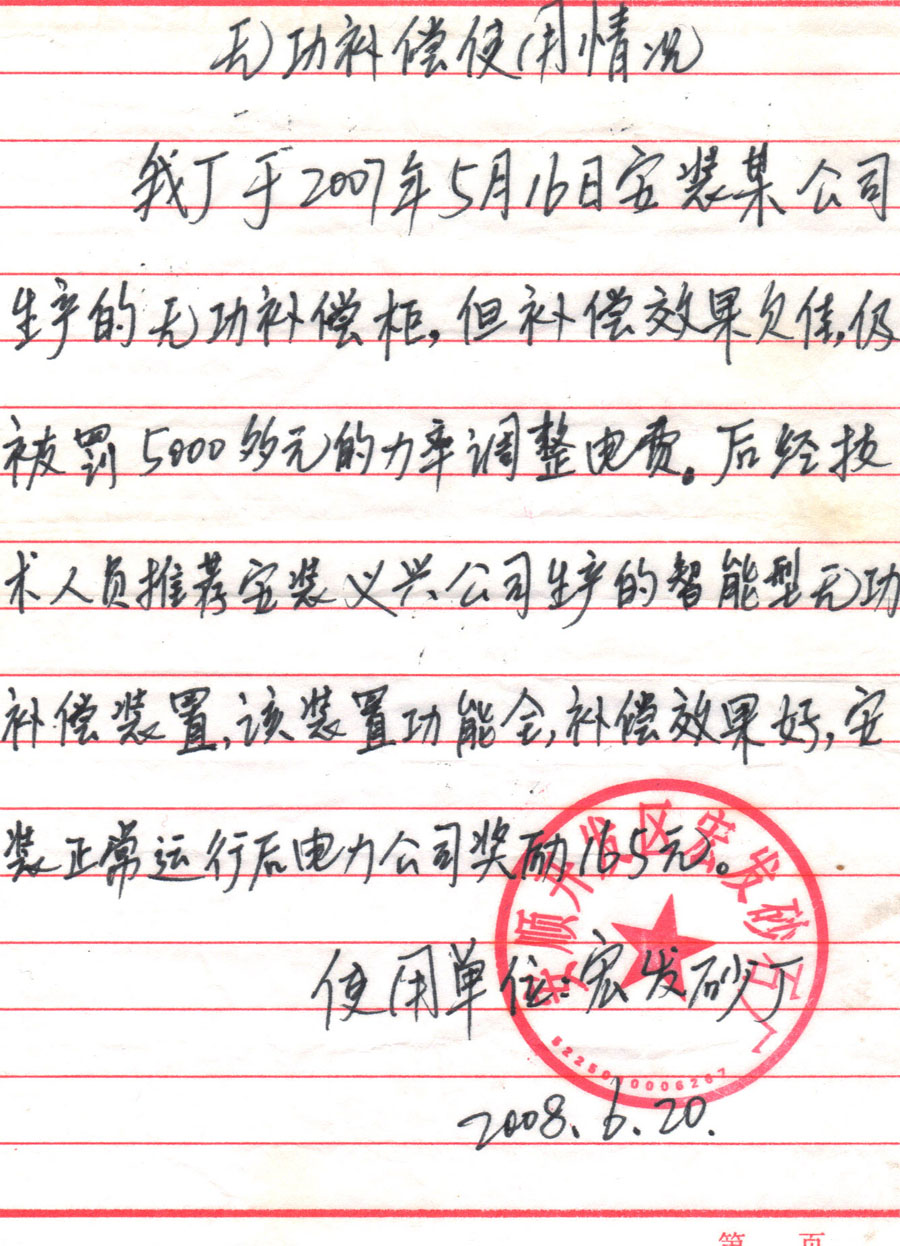 无功补偿使用情况
我厂于2007年5月16日安装某公司
生产的无功补偿柜,但补偿效果欠佳,仍
被罚5000多元的力率调整电费。后经技
术人员推荐安装义兴公司生产的智能型无功
补偿装置,该装置功能全,补偿效果好,安
装正常运行后电力公司奖励165元。
安顺开发区宏发砂石厂
使用单位:宏发砂厂
2008.6.20.
第 页